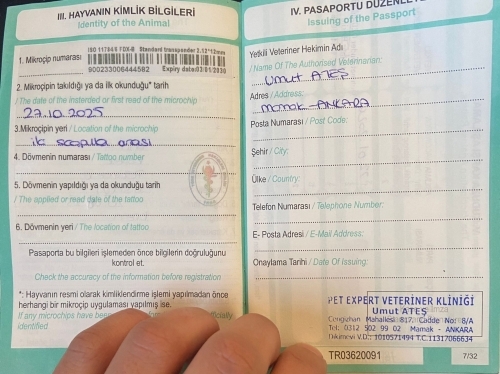 III. HAYVANIN KİMLİK BİLGİLERİ
Identity of the Animal
1. Mikroçip numarası
ISO 11784/5 FDX-B Standard transponder 2.12*12mm
900233006444582 Expiry date:03/01/2030
2. Mikroçipin takıldığı ya da ilk okunduğu* tarih
/The date of the insterded or first read of the microchip
27.10.2025
3.Mikroçipin yeri / Location of the microchip
iki scapula arası
4. Dövmenin numarası / Tattoo number
5. Dövmenin yapıldığı ya da okunduğu tarih
/ The applied or read date of the tattoo
6. Dövmenin yeri / The location of tattoo
Pasaporta bu bilgileri işlemeden önce bilgilerin doğruluğunu
kontrol et.
Check the accuracy of the information before registration
*: Hayvanın resmi olarak kimliklendirme işlemi yapılmadan önce
herhangi bir mikroçip uygulaması yapılmış ise.
If any microchips have officially
identified
IV. PASAPORTU DÜZENLE
Issuing of the Passport
Yetkili Veteriner Hekimin Adı
/ Name Of The Authorised Veterinarian:
Umut ATEŞ
Adres / Address:
Mamak-ANKARA
Posta Numarası / Post Code:
Şehir / City:
Ülke / Country:
Telefon Numarası / Telephone Number:
E- Posta Adresi / E-Mail Address:
Onaylama Tarihi / Date Of Issuing:
PET EXPERT VETERİNER KLİNİĞİ
Umut ATEŞ
Cengizhan Mahallesi 817. Cadde No: 8/A
Tel: 0312 502 99 02 Mamak - ANKARA
Dikimevi V.D.: 1010571494 T.C.11317066634
TR03620091
7/32